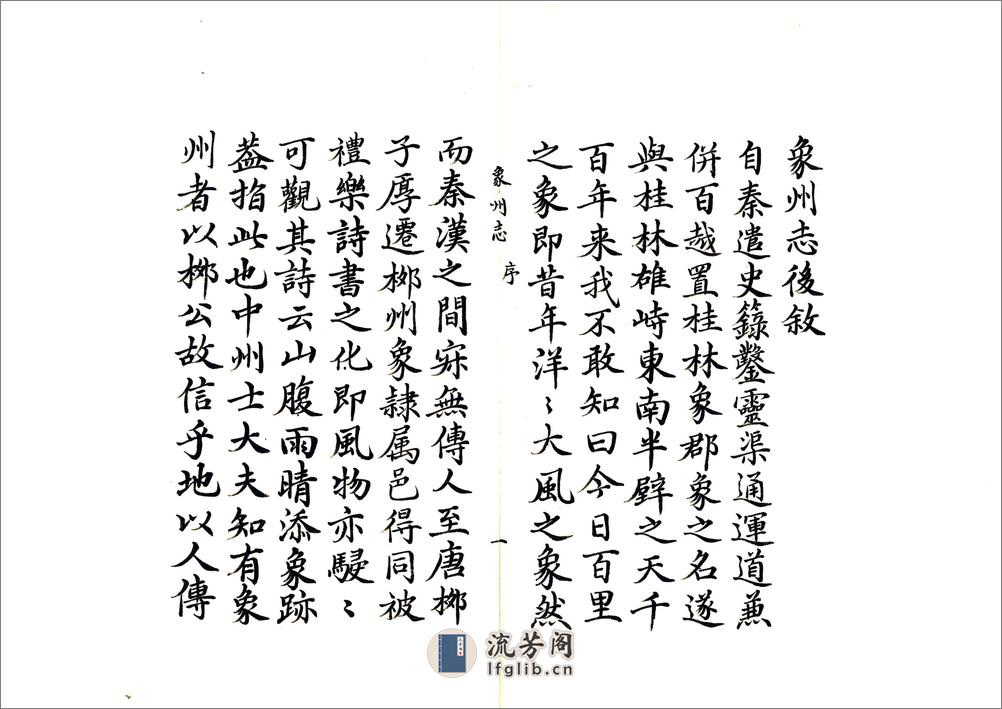 象州志後敘
自秦遣史籙鑿靈渠通運道兼
併百越置桂林象郡象之名遂
與桂林雄峙東南半壁之天千
百年来我不敢知曰今日百里
之象即昔年洋〻大風之象然
象州志 序 一
而秦漢之間寂無傳人至唐桞
子厚遷桞州象隸属邑得同被
禮樂詩書之化即風物亦駸〻
可觀其詩云山腹雨晴添象跡
葢指此也中州士大夫知有象
州者以桞公故信乎地以人傳
流芳阁
lfglib.cn